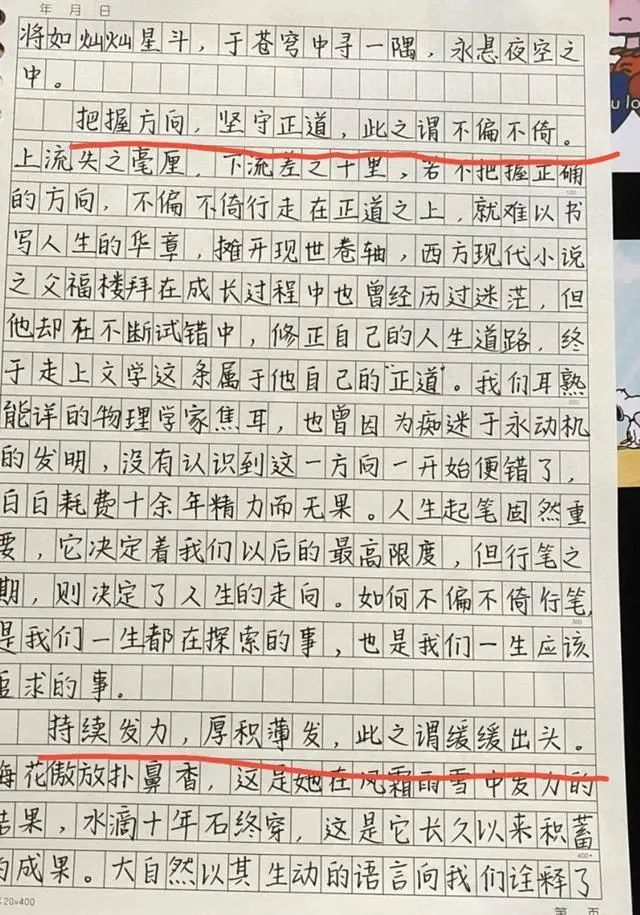 年 月 日
将如灿灿星斗，于苍穹中寻一隅，永悬夜空之
中。
把握方向，坚守正道，此之谓不偏不倚。
上流失之毫厘，下流差之千里，若不把握正确
的方向，不偏不倚行走在正道之上，就难以书
写人生的华章，摊开现世卷轴，西方现代小说
之父福楼拜在成长过程中也曾经历过迷茫，但
他却在不断试错中，修正自己的人生道路，终
于走上文学这条属于他自己的"正道"。我们耳熟
能详的物理学家焦耳，也曾因为痴迷于永动机
的发明，没有认识到这一方向一开始便错了，
白白耗费十余年精力而无果。人生起笔固然重
要，它决定着我们以后的最高限度，但行笔之
期，则决定了人生的走向。如何不偏不倚行笔，
是我们一生都在探索的事，也是我们一生应该
追求的事。
持续发力，厚积薄发，此之谓缓缓出头。
梅花傲放扑鼻香，这是她在风霜雨雪中发力的
结果，水滴十年石终穿，这是它长久以来积蓄
的成果。大自然以其生动的语言向我们诠释了
×20=400
第 页
100
200
300
400
u lo